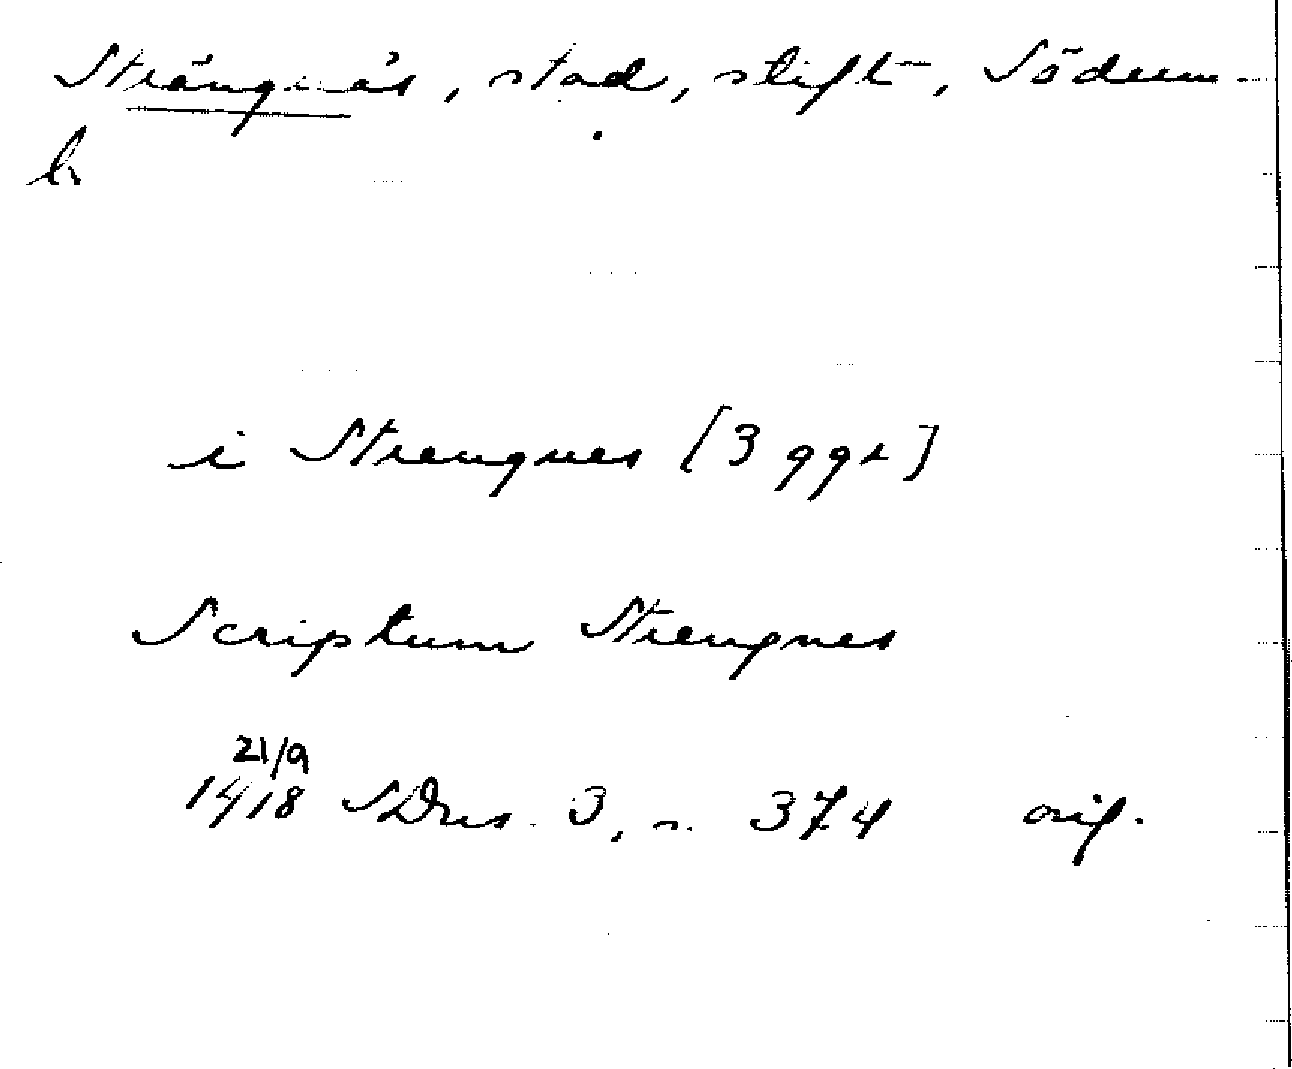 Strängnäs, stad, stift, Söderm-
l.
i Strengnes [3 ggr]
Scriptum Strengnes
21/9
1418 SDns. 3, s. 374 orig.